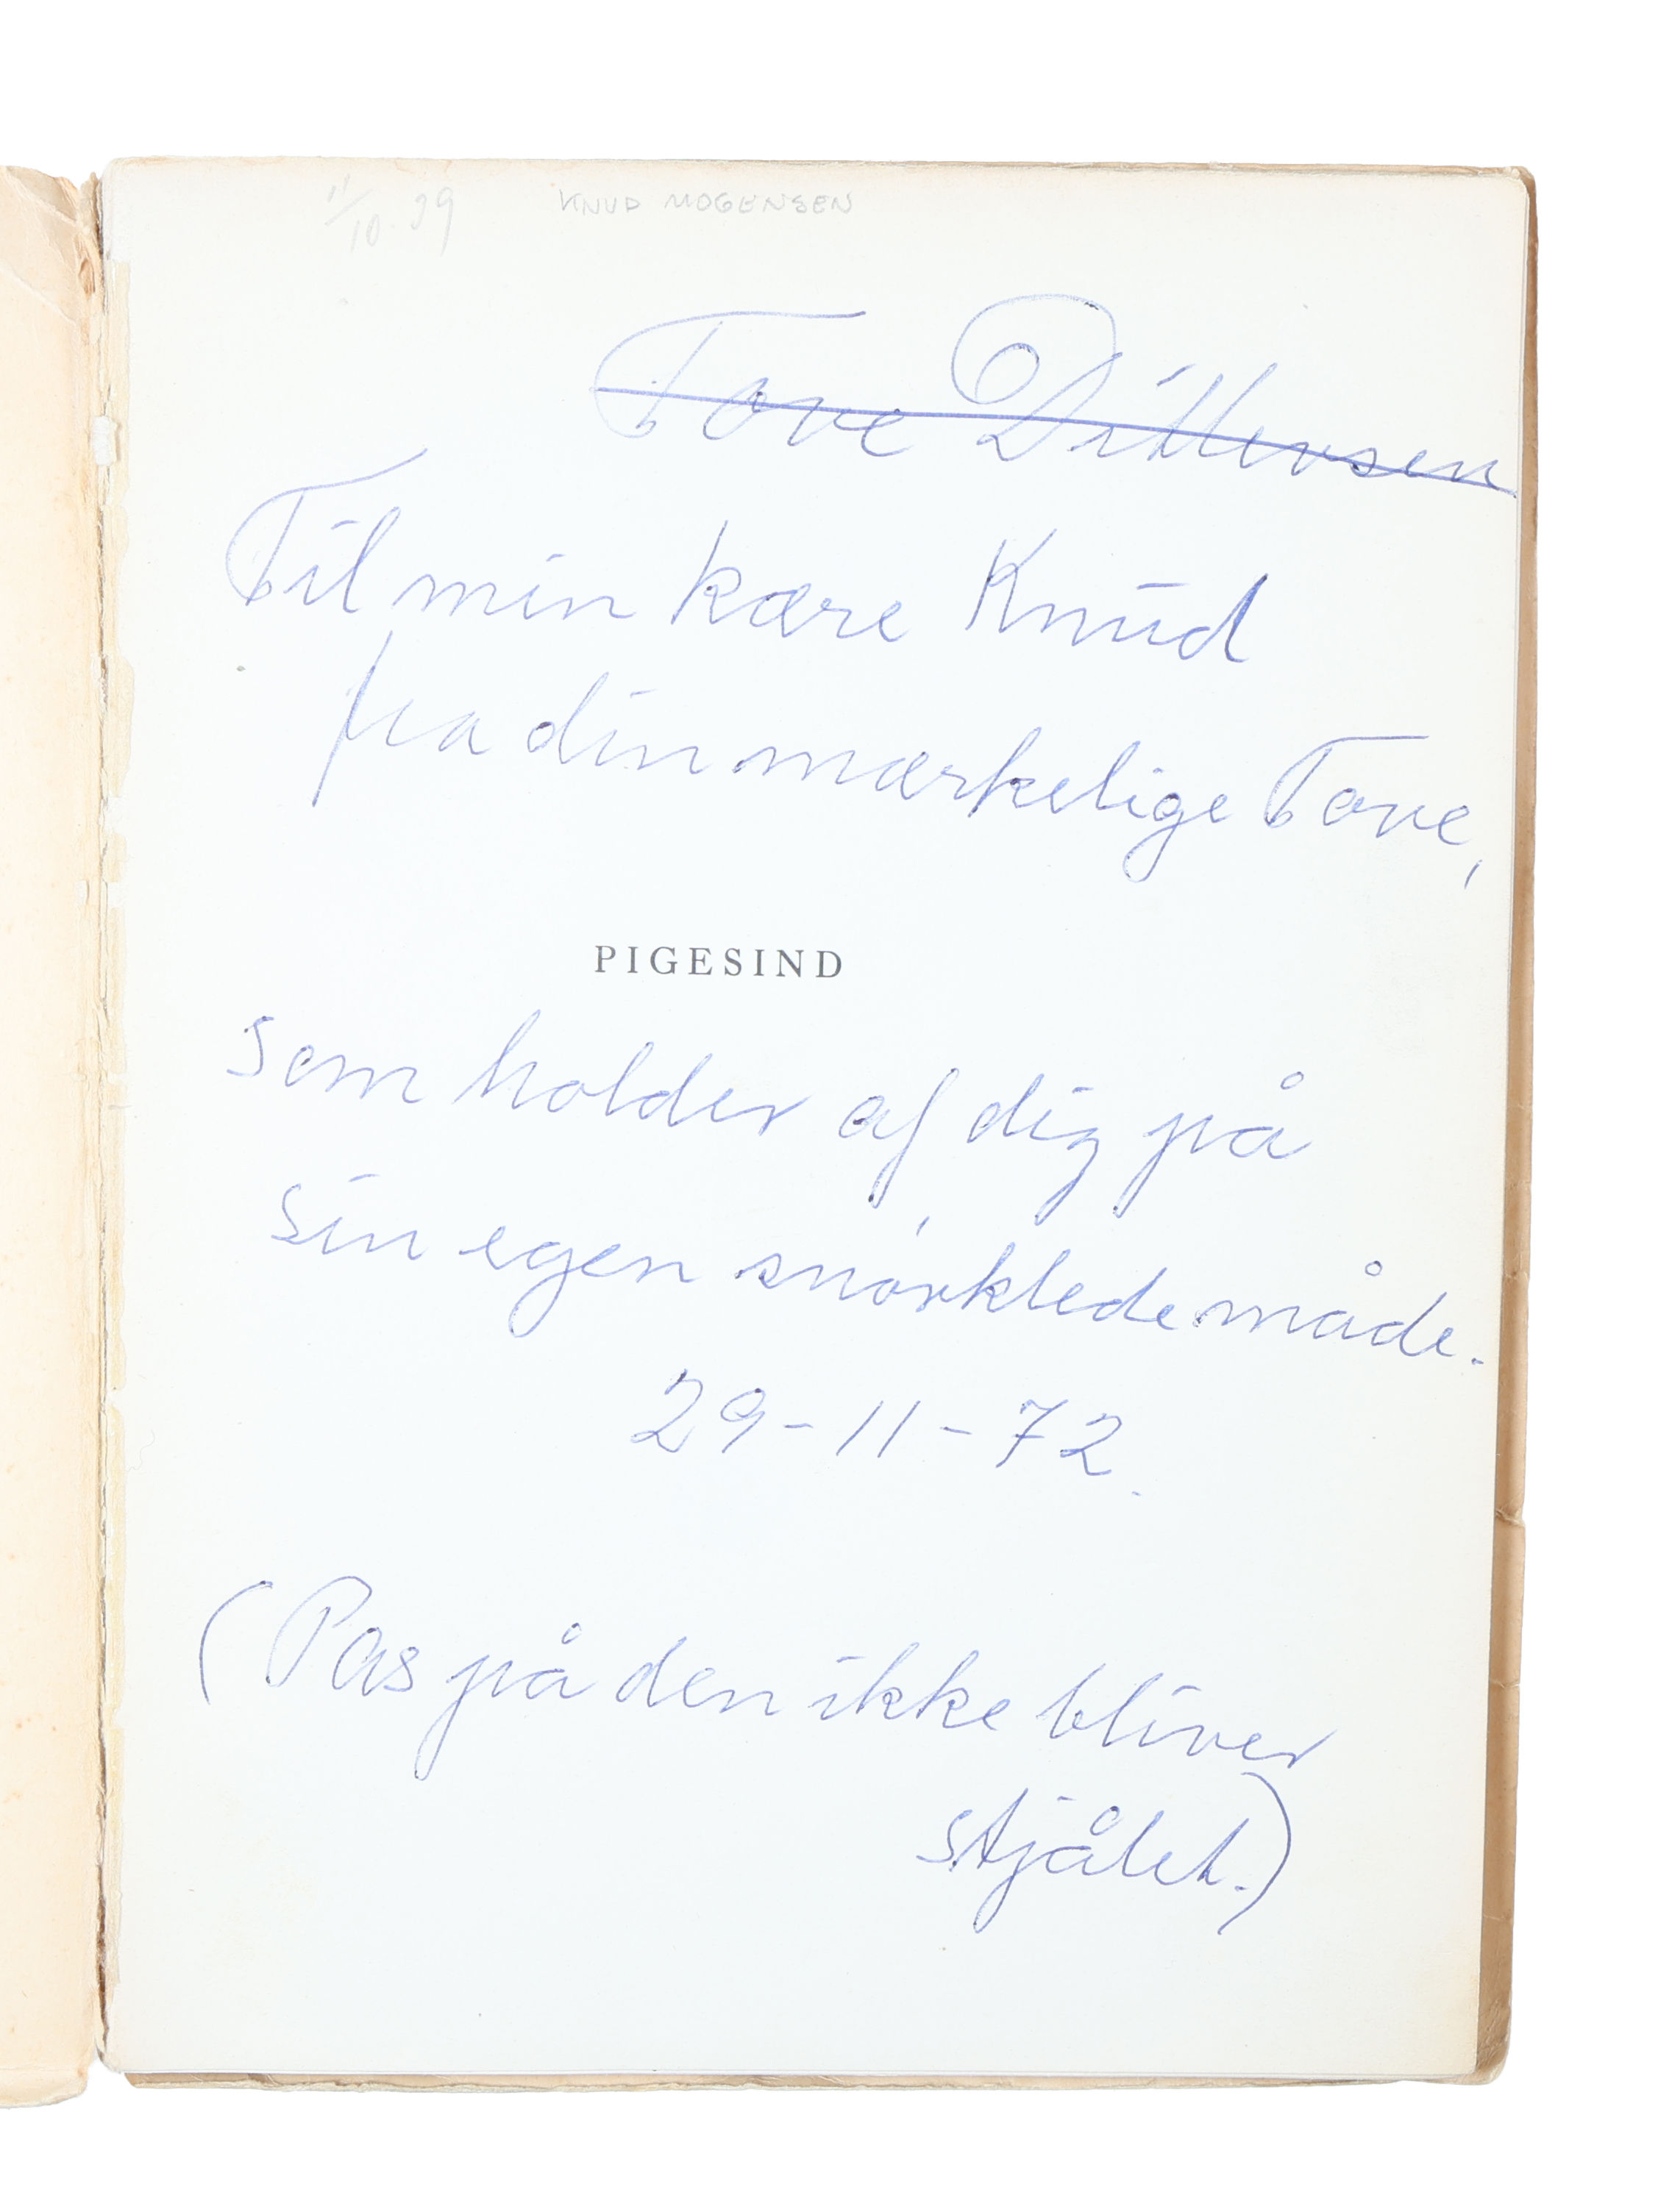 11/10.39 KNUD MOGENSEN
Tove Ditlevsen
Til min kære Knud
fra din mærkelige Tove,
PIGESIND
som holder af dig på
sin egen snørklede måde.
29-11-72.
(Pas på den ikke bliver
stjålet.)